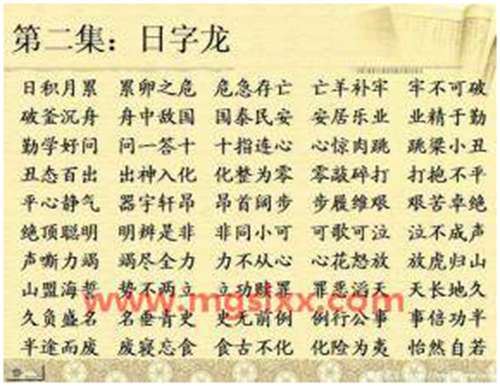 第二集：日字龙
日积月累 累卵之危 危急存亡 亡羊补牢 牢不可破
破釜沉舟 舟中敌国 国泰民安 安居乐业 业精于勤
勤学好问 问一答十 十指连心 心惊肉跳 跳梁小丑
丑态百出 出神入化 化整为零 零敲碎打 打抱不平
平心静气 器宇轩昂 昂首阔步 步履维艰 艰苦卓绝
绝顶聪明 明辨是非 非同小可 可歌可泣 泣不成声
声嘶力竭 竭尽全力 力不从心 心花怒放 放虎归山
山盟海誓 势不两立 立功赎罪 罪恶滔天 天长地久
www.mgslxx.com
久负盛名 名垂青史 史无前例 例行公事 事倍功半
半途而废 废寝忘食 食古不化 化险为夷 怡然自若